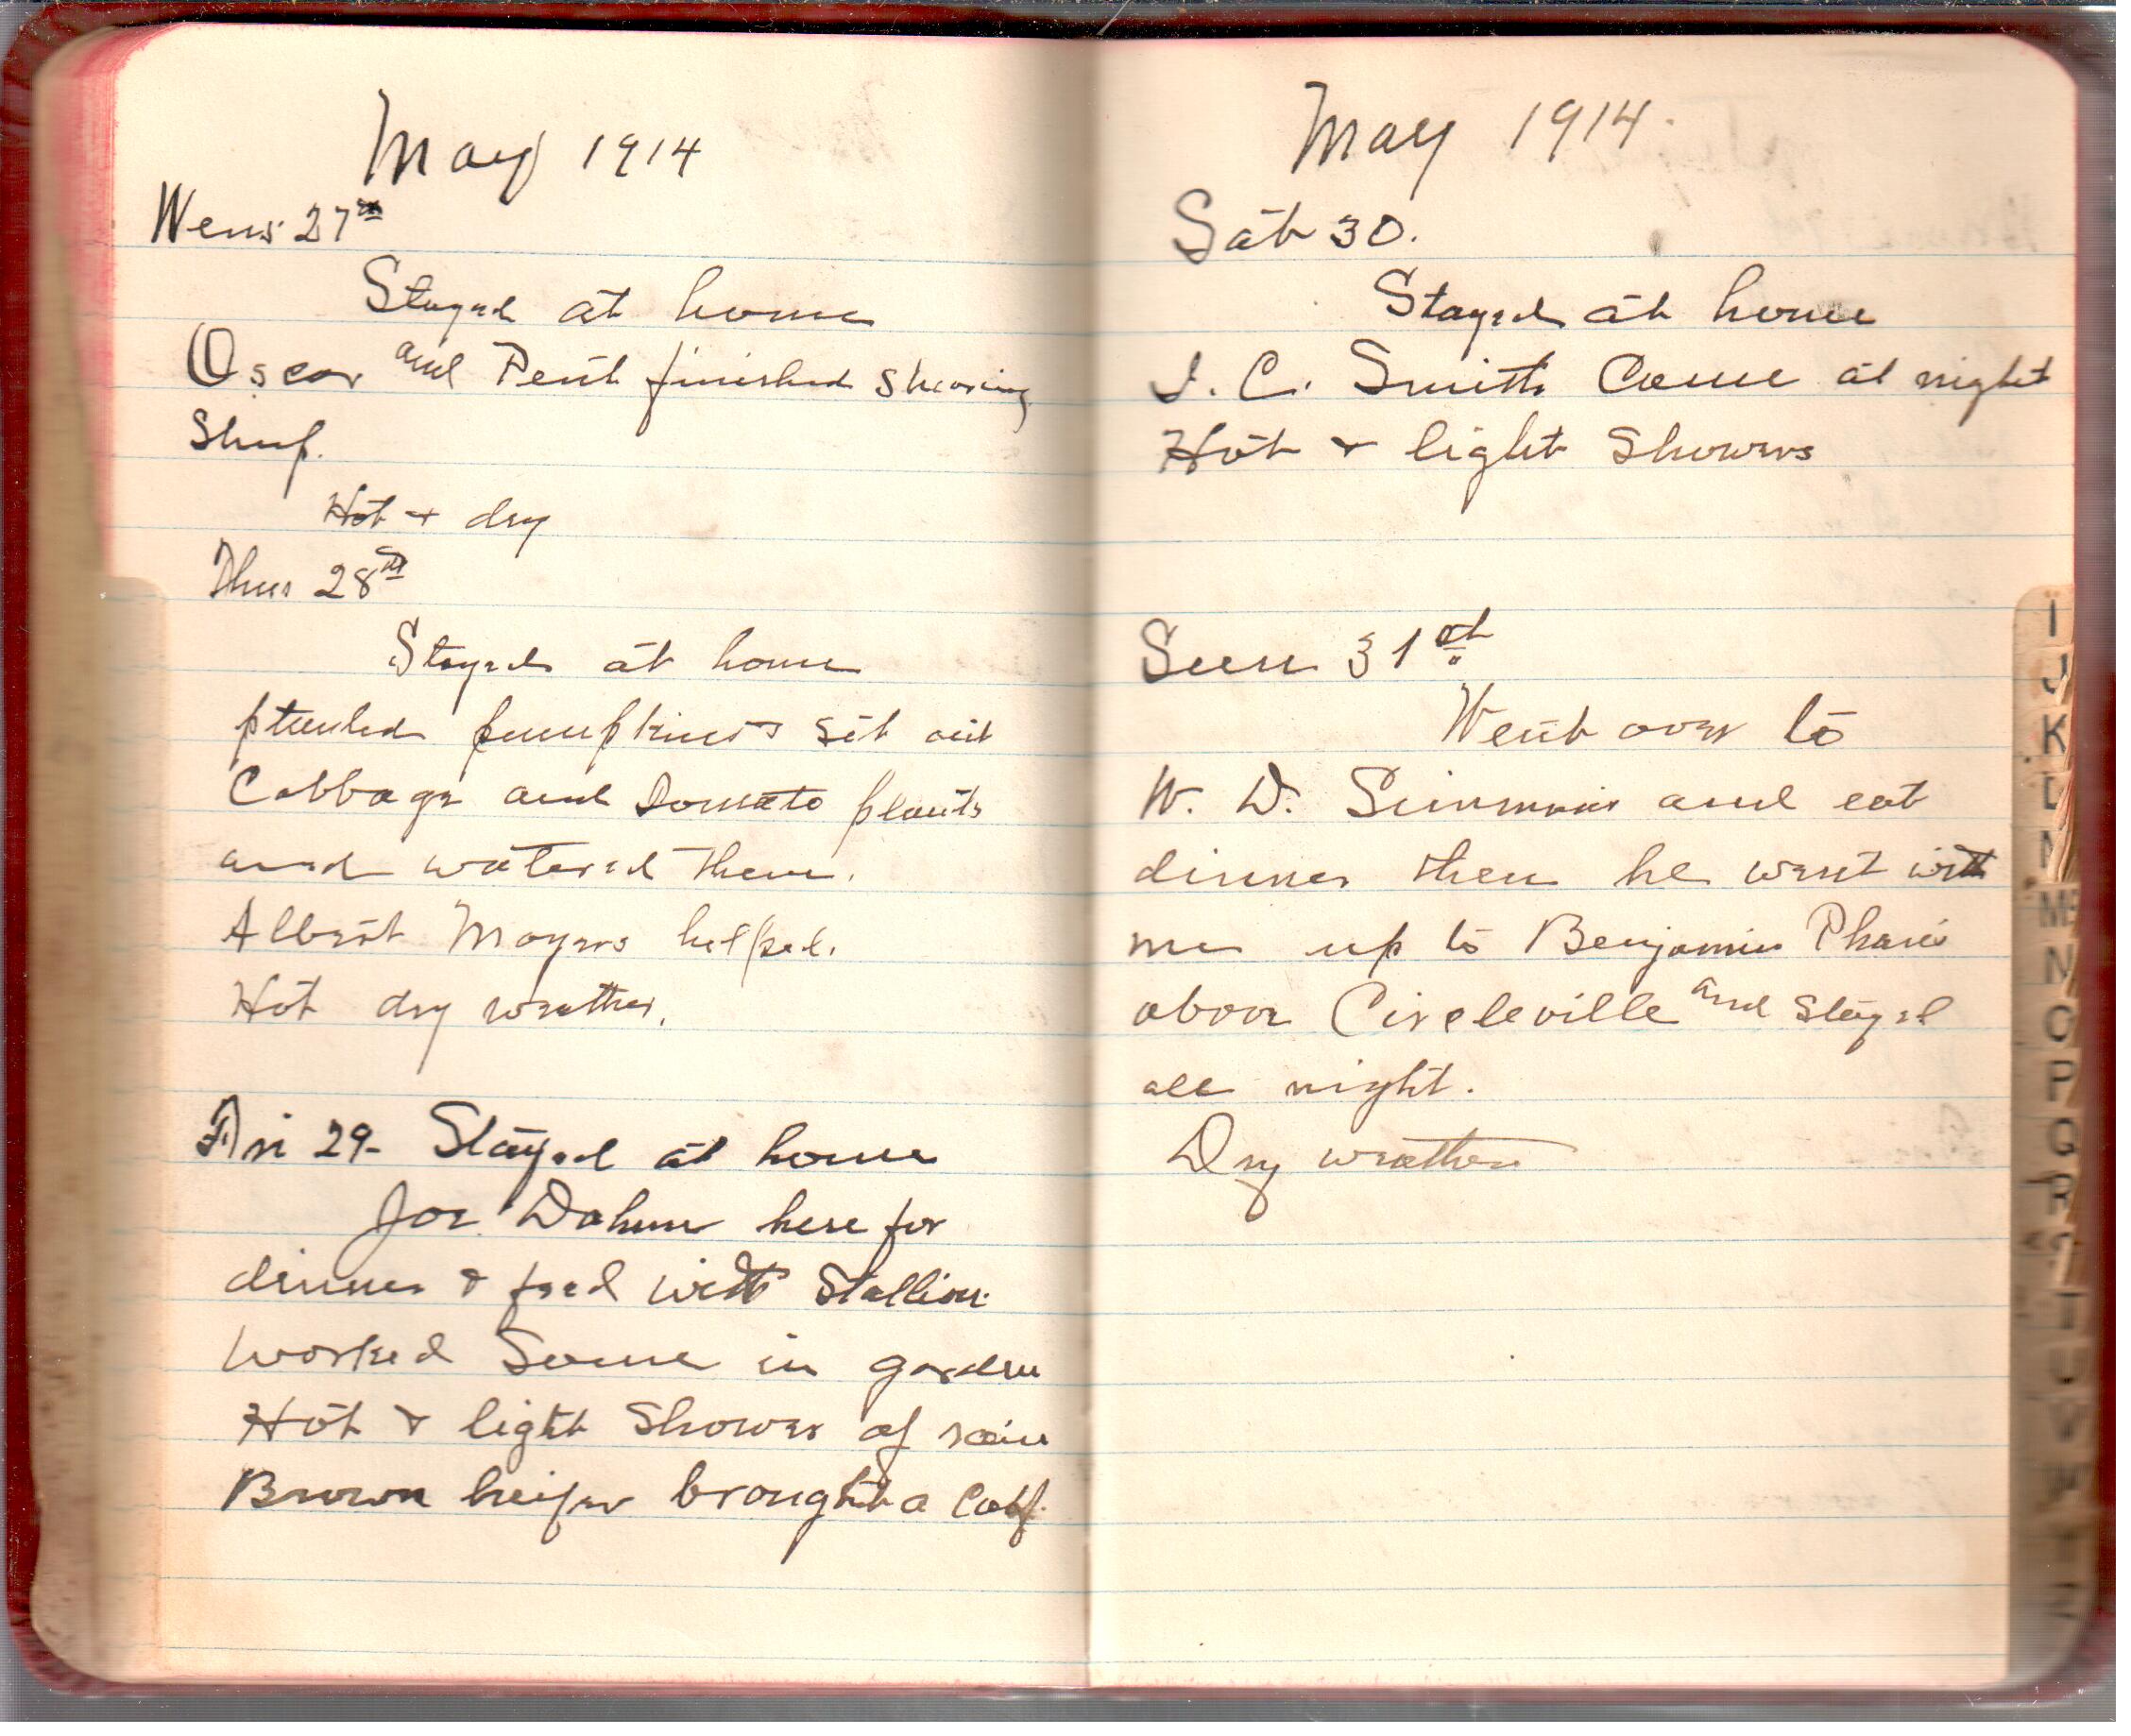 May 1914
Wens 27th
Stayed at home
Oscar and Pent finished shearing
Sheep.
Hot + dry
Thur 28th
Stayed at home
planted pumpkins set out
Cabbage and Tomato plants
and watered them.
Albert Moyers helped.
Hot dry weather.
Fri 29- Stayed at home
Joe Dahmer here for
dinner & feed with Stallion.
Worked Some in garden
Hot & light Shower of rain
Brown heifer brought a Calf.
May 1914.
Sat 30.
Stayed at home
I. C. Smith Came at night
Hot & light Showers
Sun 31st
Went over to
W. D. Simmons and eat
dinner then he went with
me up to Benjamin Phares
above Circleville and Stayed
all night.
Dry weather
I
J
K
L
M
Mc
N
O
P
Q
R
S
T
U
V
W